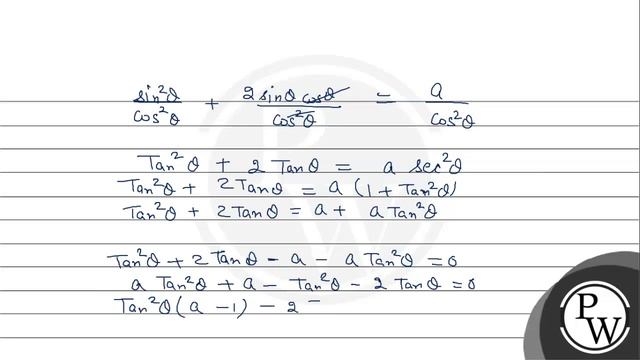 sin²θ/cos²θ + 2 sinθ cosθ/cos²θ = a/cos²θ
Tan²θ + 2 Tanθ = a sec²θ
Tan²θ + 2Tanθ = a (1 + Tan²θ)
Tan²θ + 2Tanθ = a + a Tan²θ
Tan²θ + 2 Tanθ - a - a Tan²θ = 0
a Tan²θ + a - Tan²θ - 2 Tanθ = 0
Tan²θ (a - 1) - 2
PW